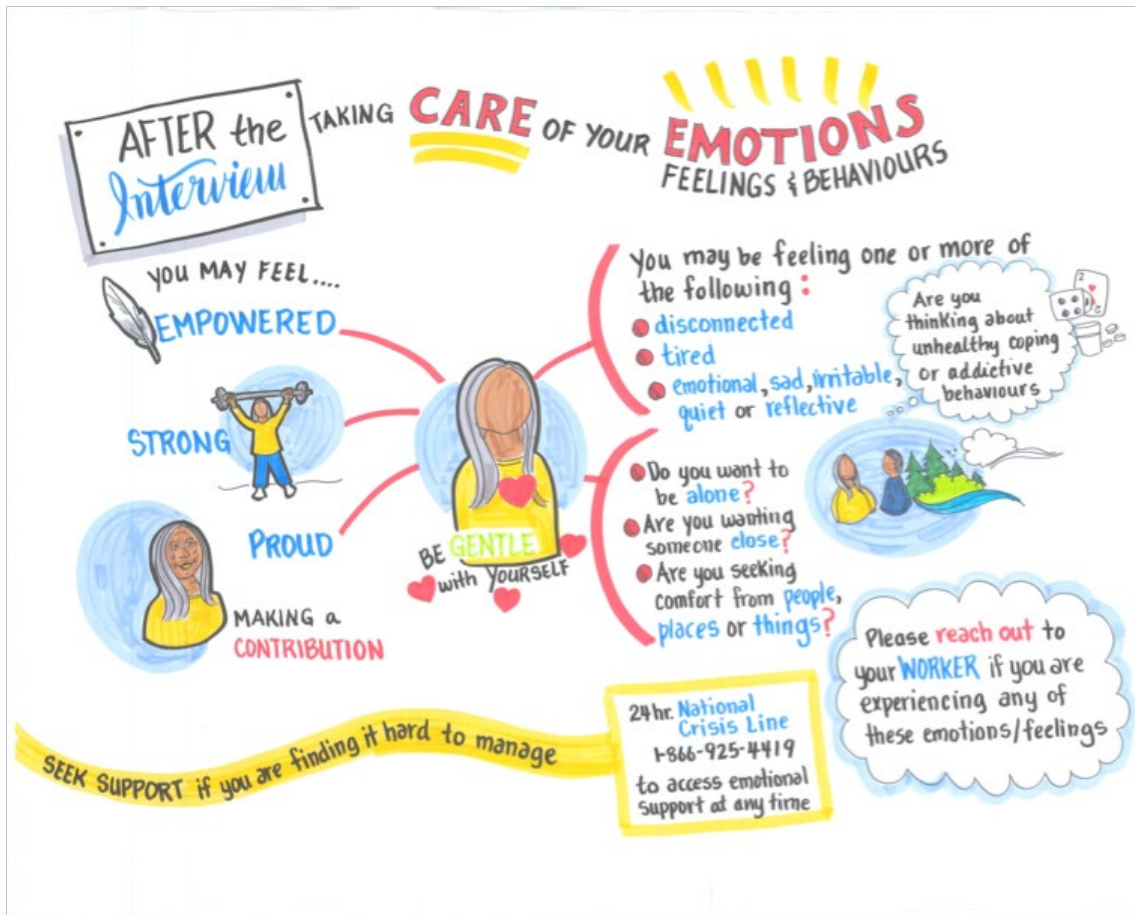 AFTER the
Interview
TAKING CARE OF YOUR EMOTIONS
FEELINGS & BEHAVIOURS
YOU MAY FEEL....
EMPOWERED
STRONG
PROUD
MAKING a
CONTRIBUTION
BE GENTLE
with YOURSELF
You may be feeling one or more of
the following :
disconnected
tired
emotional, sad, irritable,
quiet or reflective
Are you
thinking about
unhealthy coping
or addictive
behaviours
Do you want to
be alone?
Are you wanting
someone close?
Are you seeking
comfort from people,
places or things?
Please reach out to
your WORKER if you are
experiencing any of
these emotions/feelings
SEEK SUPPORT if you are finding it hard to manage
24hr. National
Crisis Line
1-866-925-4419
to access emotional
support at any time
2
2